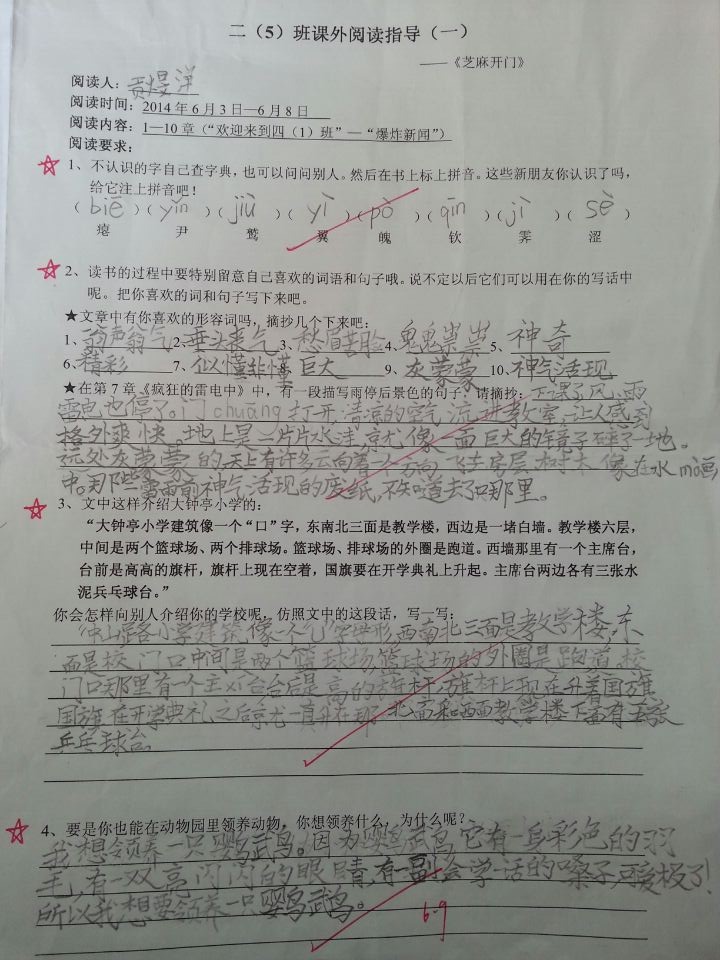 二（5）班课外阅读指导（一）
——《芝麻开门》
阅读人：贡煜洋
阅读时间：2014年6月3日—6月8日
阅读内容：1—10章（“欢迎来到四（1）班”—“爆炸新闻”）
阅读要求：
1、不认识的字自己查字典，也可以问问别人。然后在书上标上拼音。这些新朋友你认识了吗，
给它注上拼音吧！
（biē）（yǐn）（jiù）（yì）（pò）（qīn）（jì）（sè）
瘪 尹 鹫 翼 魄 钦 霁 涩
2、读书的过程中要特别留意自己喜欢的词语和句子哦。说不定以后它们可以用在你的写话中
呢。把你喜欢的词和句子写下来吧。
★文章中有你喜欢的形容词吗，摘抄几个下来吧：
1、瓮声瓮气 2、垂头丧气 3、愁眉苦脸 4、鬼鬼祟祟 5、神奇
6、精彩 7、似懂非懂 8、巨大 9、灰蒙蒙 10、神气活现
★在第7章《疯狂的雷电中》中，有一段描写雨停后景色的句子，请摘抄：下课了，风、雨、
雷电也停了。门chuāng打开，清凉的空气流进教室，让人感到
格外爽快。地上是一片片水洼，京尤像一面巨大的镜子碎了一地。
远处灰蒙蒙的，天上有许多云向着一个方向飞，车房层树木像在水mò画
中。那些雷雨前神气活现的废纸，不知道去了哪里。
3、文中这样介绍大钟亭小学的：
“大钟亭小学建筑像一个“口”字，东南北三面是教学楼，西边是一堵白墙。教学楼六层，
中间是两个篮球场、两个排球场。篮球场、排球场的外圈是跑道。西墙那里有一个主席台，
台前是高高的旗杆，旗杆上现在空着，国旗要在开学典礼上升起。主席台两边各有三张水
泥乒乓球台。”
你会怎样向别人介绍你的学校呢，仿照文中的这段话，写一写：
小学建筑像西南北三面是教学楼，东
面是校门口，中间是两个篮球场，篮球场的外圈是跑道，校
门口那里有一个主台，台后是高的旗杆，旗杆上现在升着国旗，
国旗在开学典礼之后京尤一直升在那，北面和西面教学楼下着有五张
乒乓球台。
4、要是你也能在动物园里领养动物，你想领养什么，为什么呢？
我想领养一只鹦鹉。因为鹦鹉它有一身彩色的羽
毛，有一双亮闪闪的眼睛，有一副会学话的嗓子，可爱极了！
所以我想要领养一只鹦鹉。
6.9